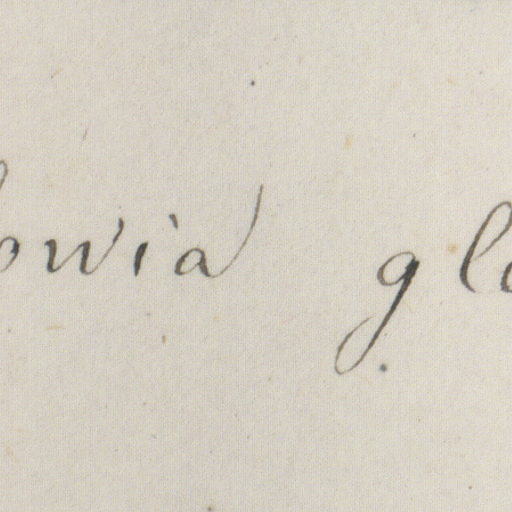 owia gl